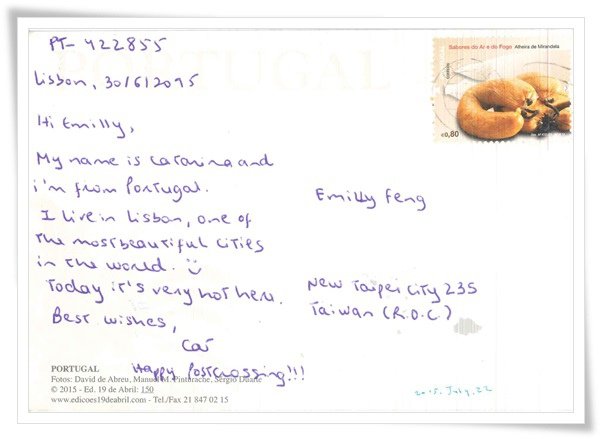 PT-422855
Lisbon, 30/6/2015
Hi Emilly,
My name is Catarina and
i'm from Portugal.
I live in Lisbon, one of
the most beautiful cities
in the world.
Today it's very hot here.
Best wishes,
Cat
Happy Postcrossing!!!
PORTUGAL
Sabores do Ar e do Fogo Alheira de Mirandela
€0,80
Emilly Feng
New Taipei City 235
Taiwan (R.O.C.)
PORTUGAL
Fotos: David de Abreu, Manuel M. Pinturache, Sérgio Duarte
© 2015 - Ed. 19 de Abril: 150
www.edicoes19deabril.com - Tel./Fax 21 847 02 15
2015. July. 22